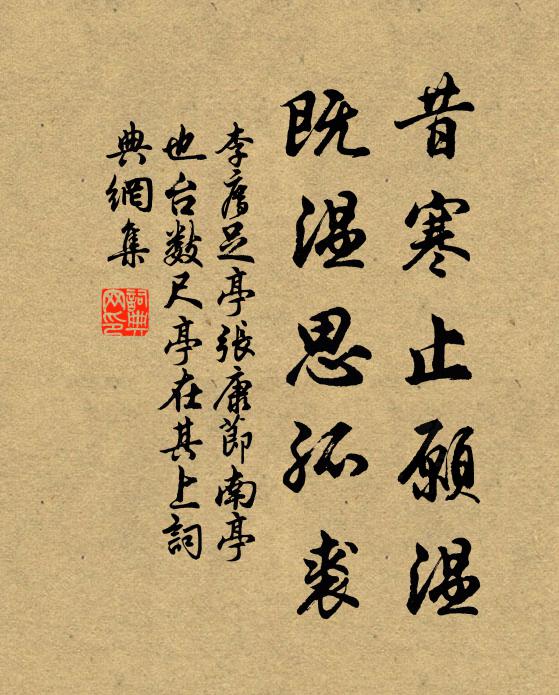 昔寒止願温
既温思狐裘
李廌足亭張康節南亭
也台數尺亭在其上詞
典網集
詞典網印